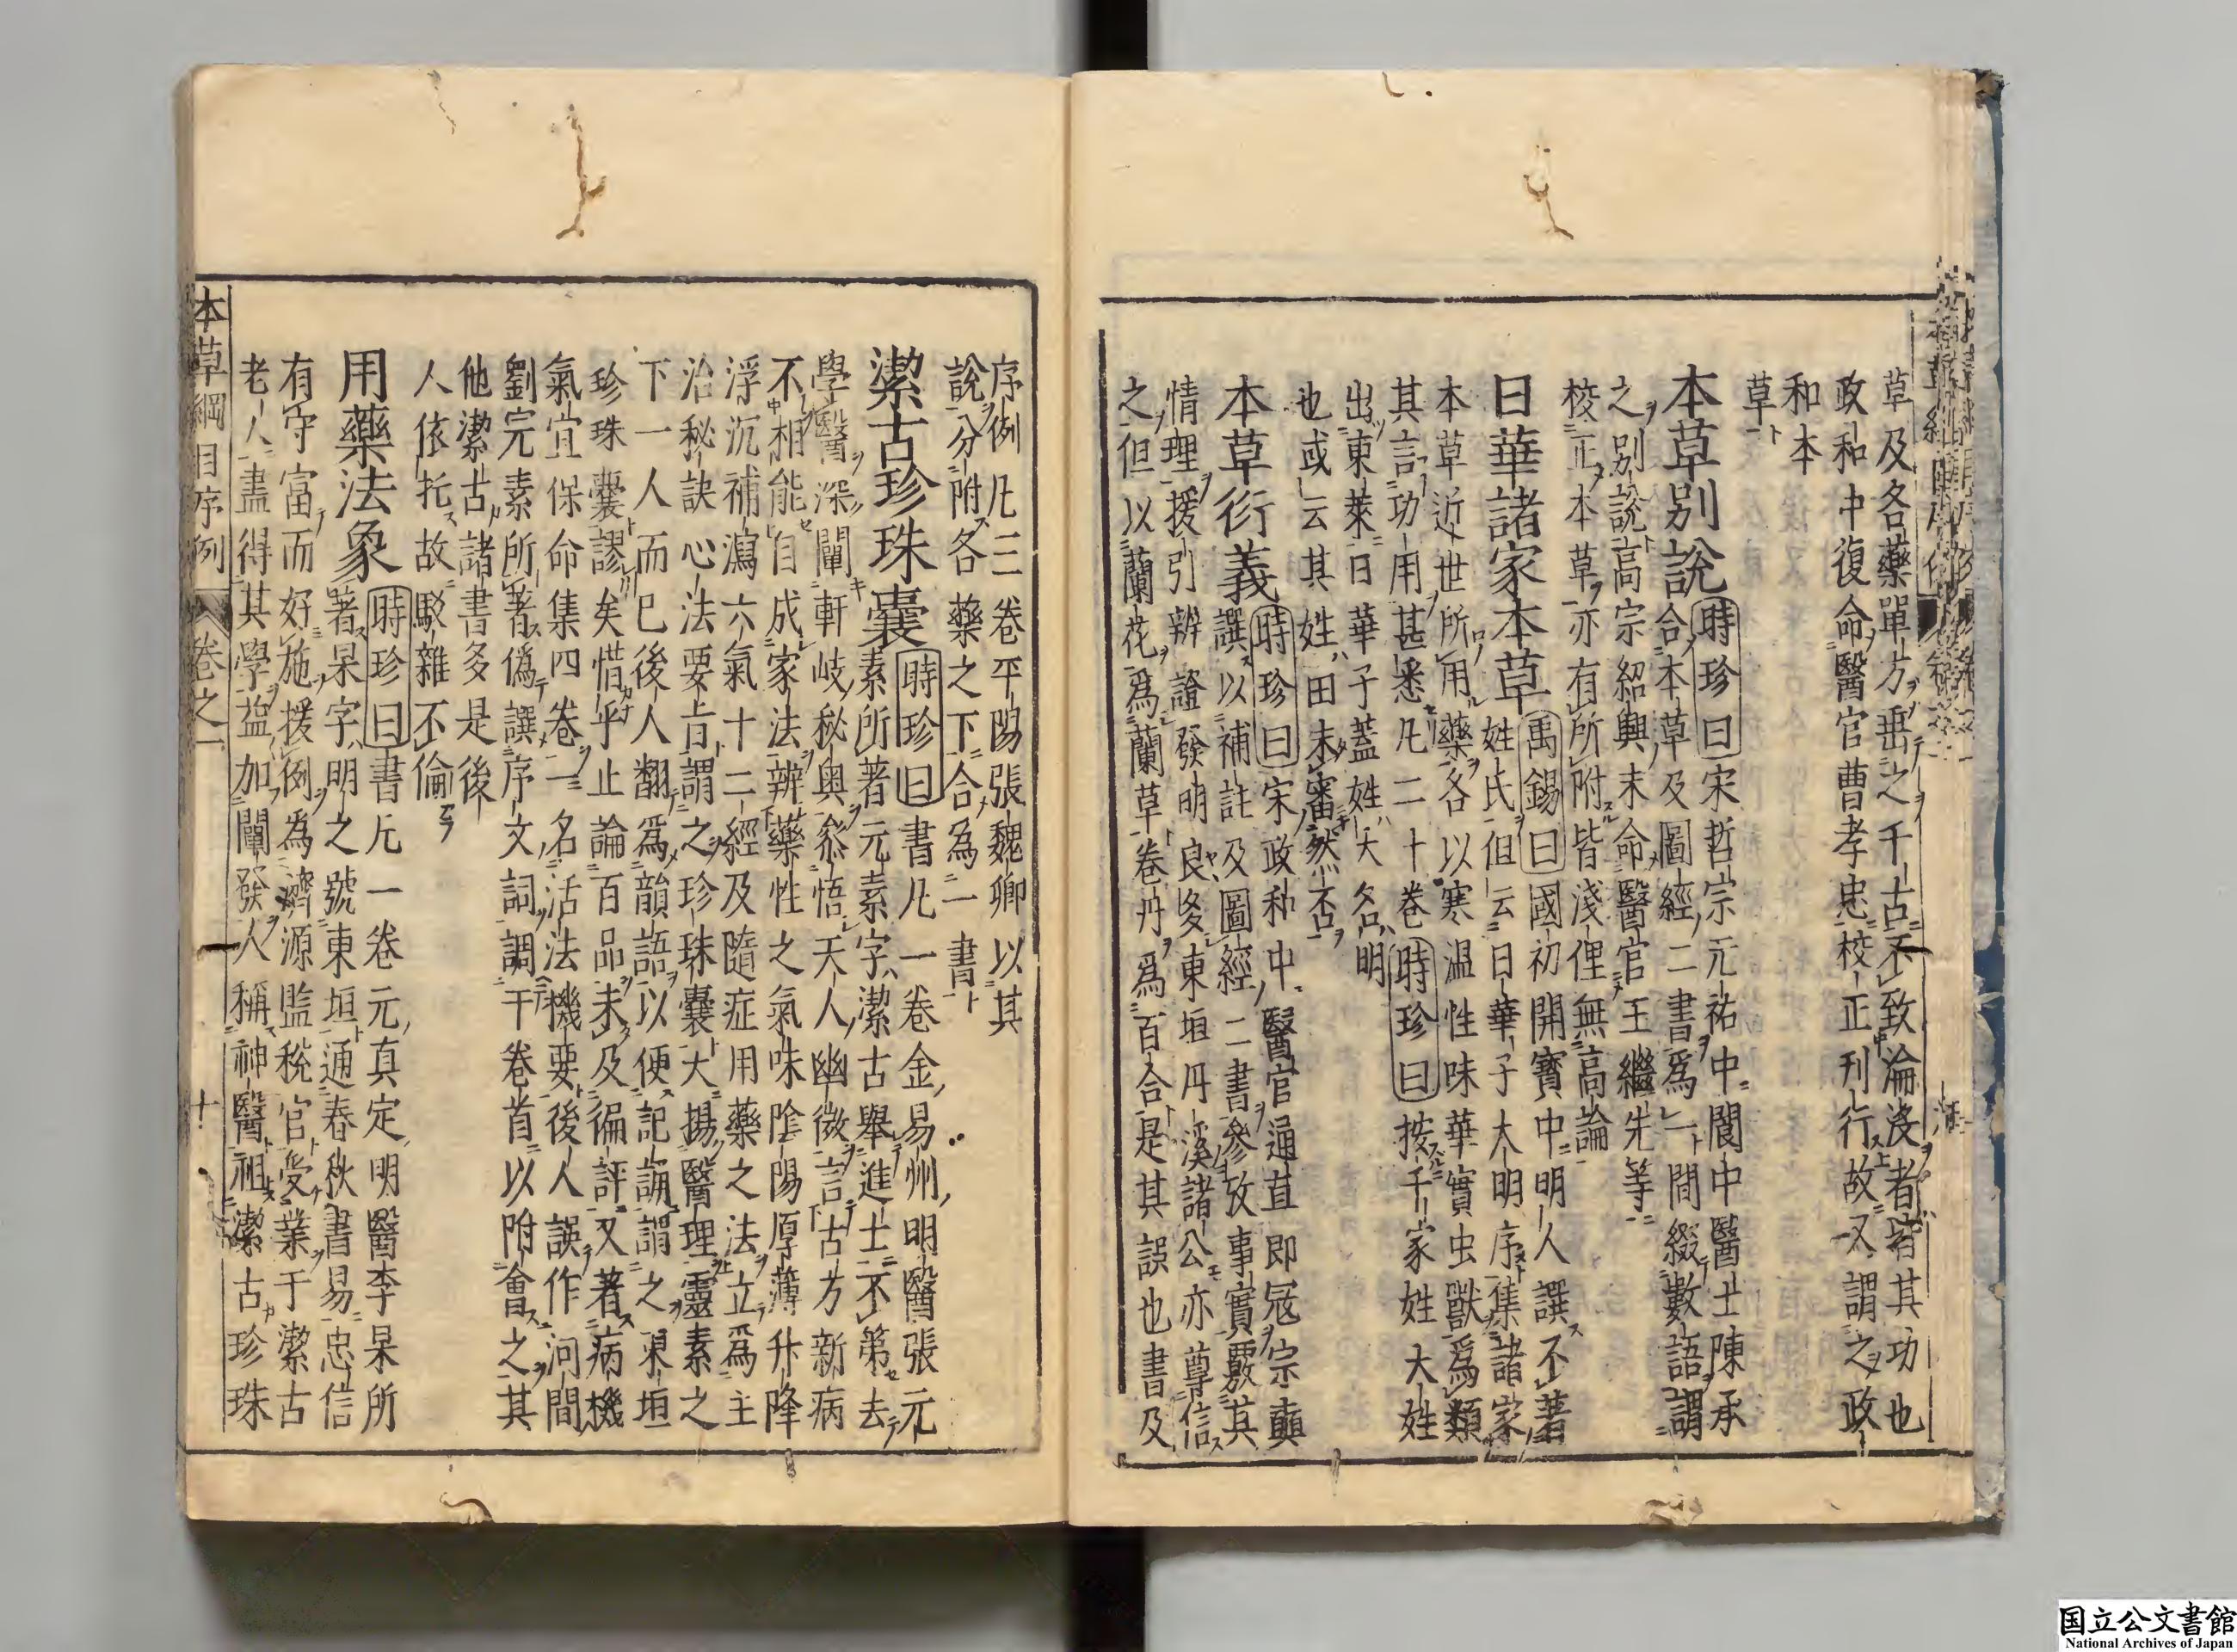 草及各藥單方垂之千古不致淪沒者皆其功也
政和中復命醫官曹孝忠校正刊行故又謂之政
和本
草
本草別說時珍曰宋哲宗元祐中閬中醫士陳承
合本草及圖經二書爲一間綴數語謂
之別說高宗紹興末命醫官王繼先等
校正本草亦有所附皆淺俚無高論
日華諸家本草禹錫曰國初開寶中明人譔不著
姓氏但云日華子大明序集諸家
本草近世所用藥各以寒温性味華實虫獸爲類
其言功用甚悉凡二十巻時珍曰按千家姓大姓
出東萊日華子蓋姓大名明
也或云其姓田未審然否
本草衍義時珍曰宋政和中醫官通直郎冦宗奭
譔以補註及圖經二書參攷事實覈其
情理援引辨證發明良多東垣丹溪諸公亦尊信
之但以蘭花爲蘭草巻丹爲百合是其誤也書及
序例凡三巻平陽張魏卿以其
說分附各藥之下合為一書
潔古珍珠囊時珍曰書凡一巻金易州明醫張元
素所著元素字潔古舉進士不第去
學醫深闡軒岐秘奥叅悟天人幽微言古方新病
不相能自成家法辨藥性之氣味陰陽厚薄升降
浮沉補瀉六氣十二經及隨症用藥之法立爲主
治秘訣心法要旨謂之珍珠囊大揚醫理靈素之
下一人而已後人翻爲韻語以便記誦謂之東垣
珍珠囊謬矣惜乎止論百品未及徧評又著病機
氣宜保命集四巻一名活法機要後人誤作河間
劉完素所著偽譔序文詞調于巻首以附會之其
他潔古諸書多是後
人依托故駁雜不倫
用藥法象時珍曰書凡一巻元真定明醫李杲所
著杲字明之號東垣通春秋書易忠信
有守富而好施援例為濟源監稅官受業于潔古
老人盡得其學益加闡發人稱神醫祖潔古珍珠
本草綱目序例 巻之一 十